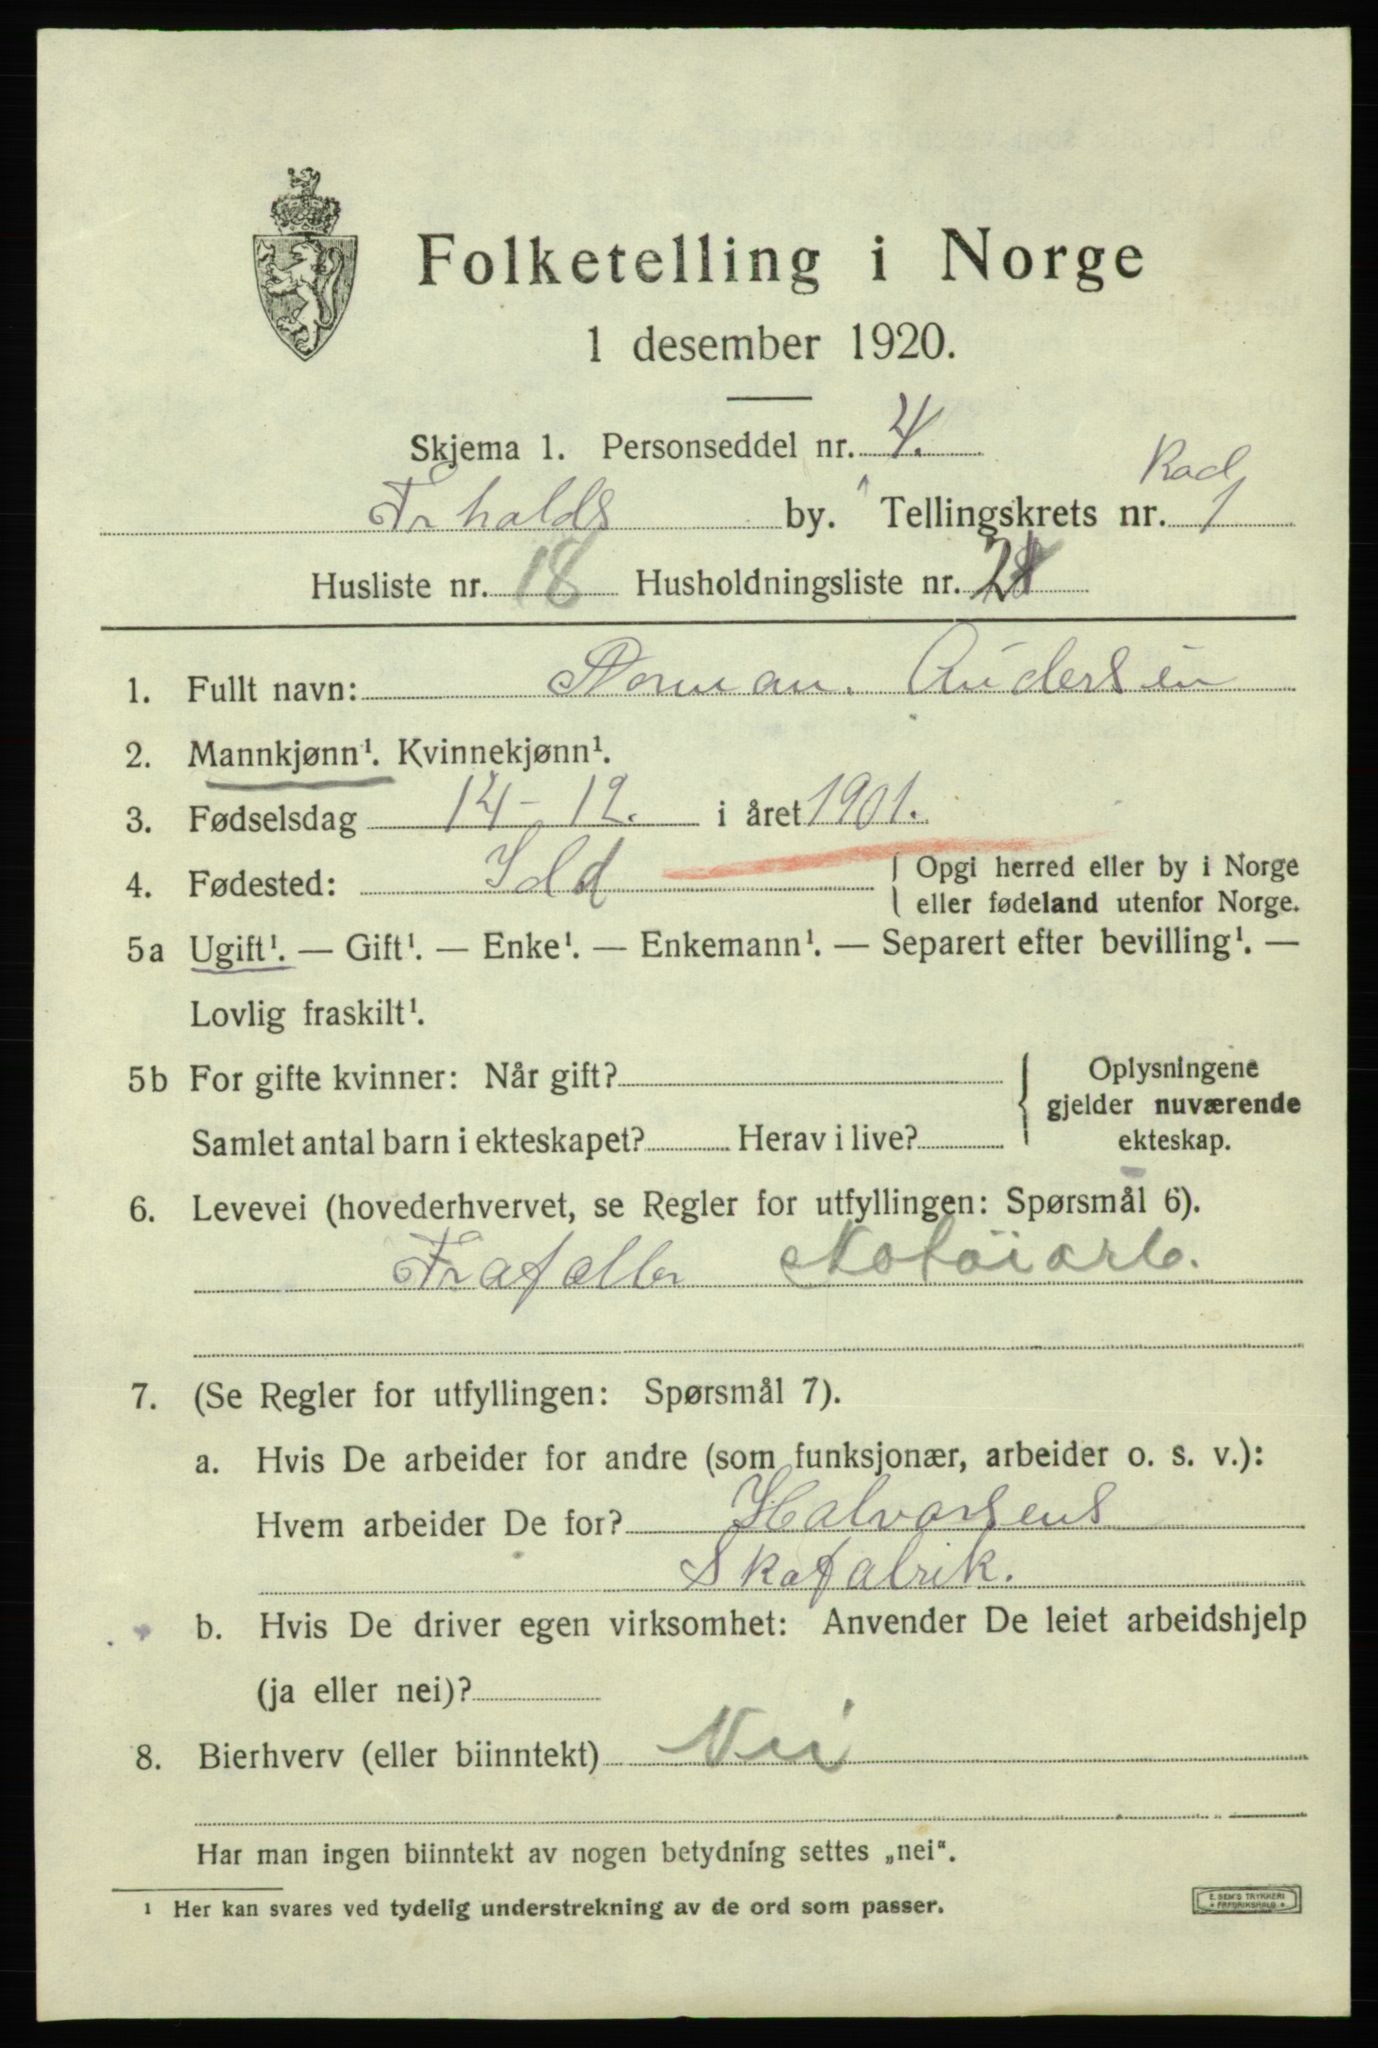 Folketelling i Norge
1 desember 1920.
Skjema 1. Personseddel nr. 4.
Frhalds by. Tellingskrets nr. 1
Husliste nr. 18 Husholdningsliste nr.
1. Fullt navn: Norman. Andersen
2. Mannkjønn¹. Kvinnekjønn¹.
3. Fødselsdag 14-12. i året 1901.
4. Fødested: Idd { Opgi herred eller by i Norge
eller fødeland utenfor Norge.
5a Ugift¹. — Gift¹. — Enke¹. — Enkemann¹. — Separert efter bevilling¹. —
Lovlig fraskilt¹.
5b For gifte kvinner: Når gift? { Oplysningene
gjelder nuværende
Samlet antal barn i ekteskapet? Herav i live? ekteskap.
6. Levevei (hovederhvervet, se Regler for utfyllingen: Spørsmål 6).
Skotøiarb.
7. (Se Regler for utfyllingen: Spørsmål 7).
a. Hvis De arbeider for andre (som funksjonær, arbeider o. s. v.):
Hvem arbeider De for? Halvorsens
Skofabrik.
b. Hvis De driver egen virksomhet: Anvender De leiet arbeidshjelp
(ja eller nei)?
8. Bierhverv (eller biinntekt) Nei
Har man ingen biinntekt av nogen betydning settes „nei“.
1 Her kan svares ved tydelig understrekning av de ord som passer.
E. SEM'S TRYKKERI
* FREDRIKSHALD *